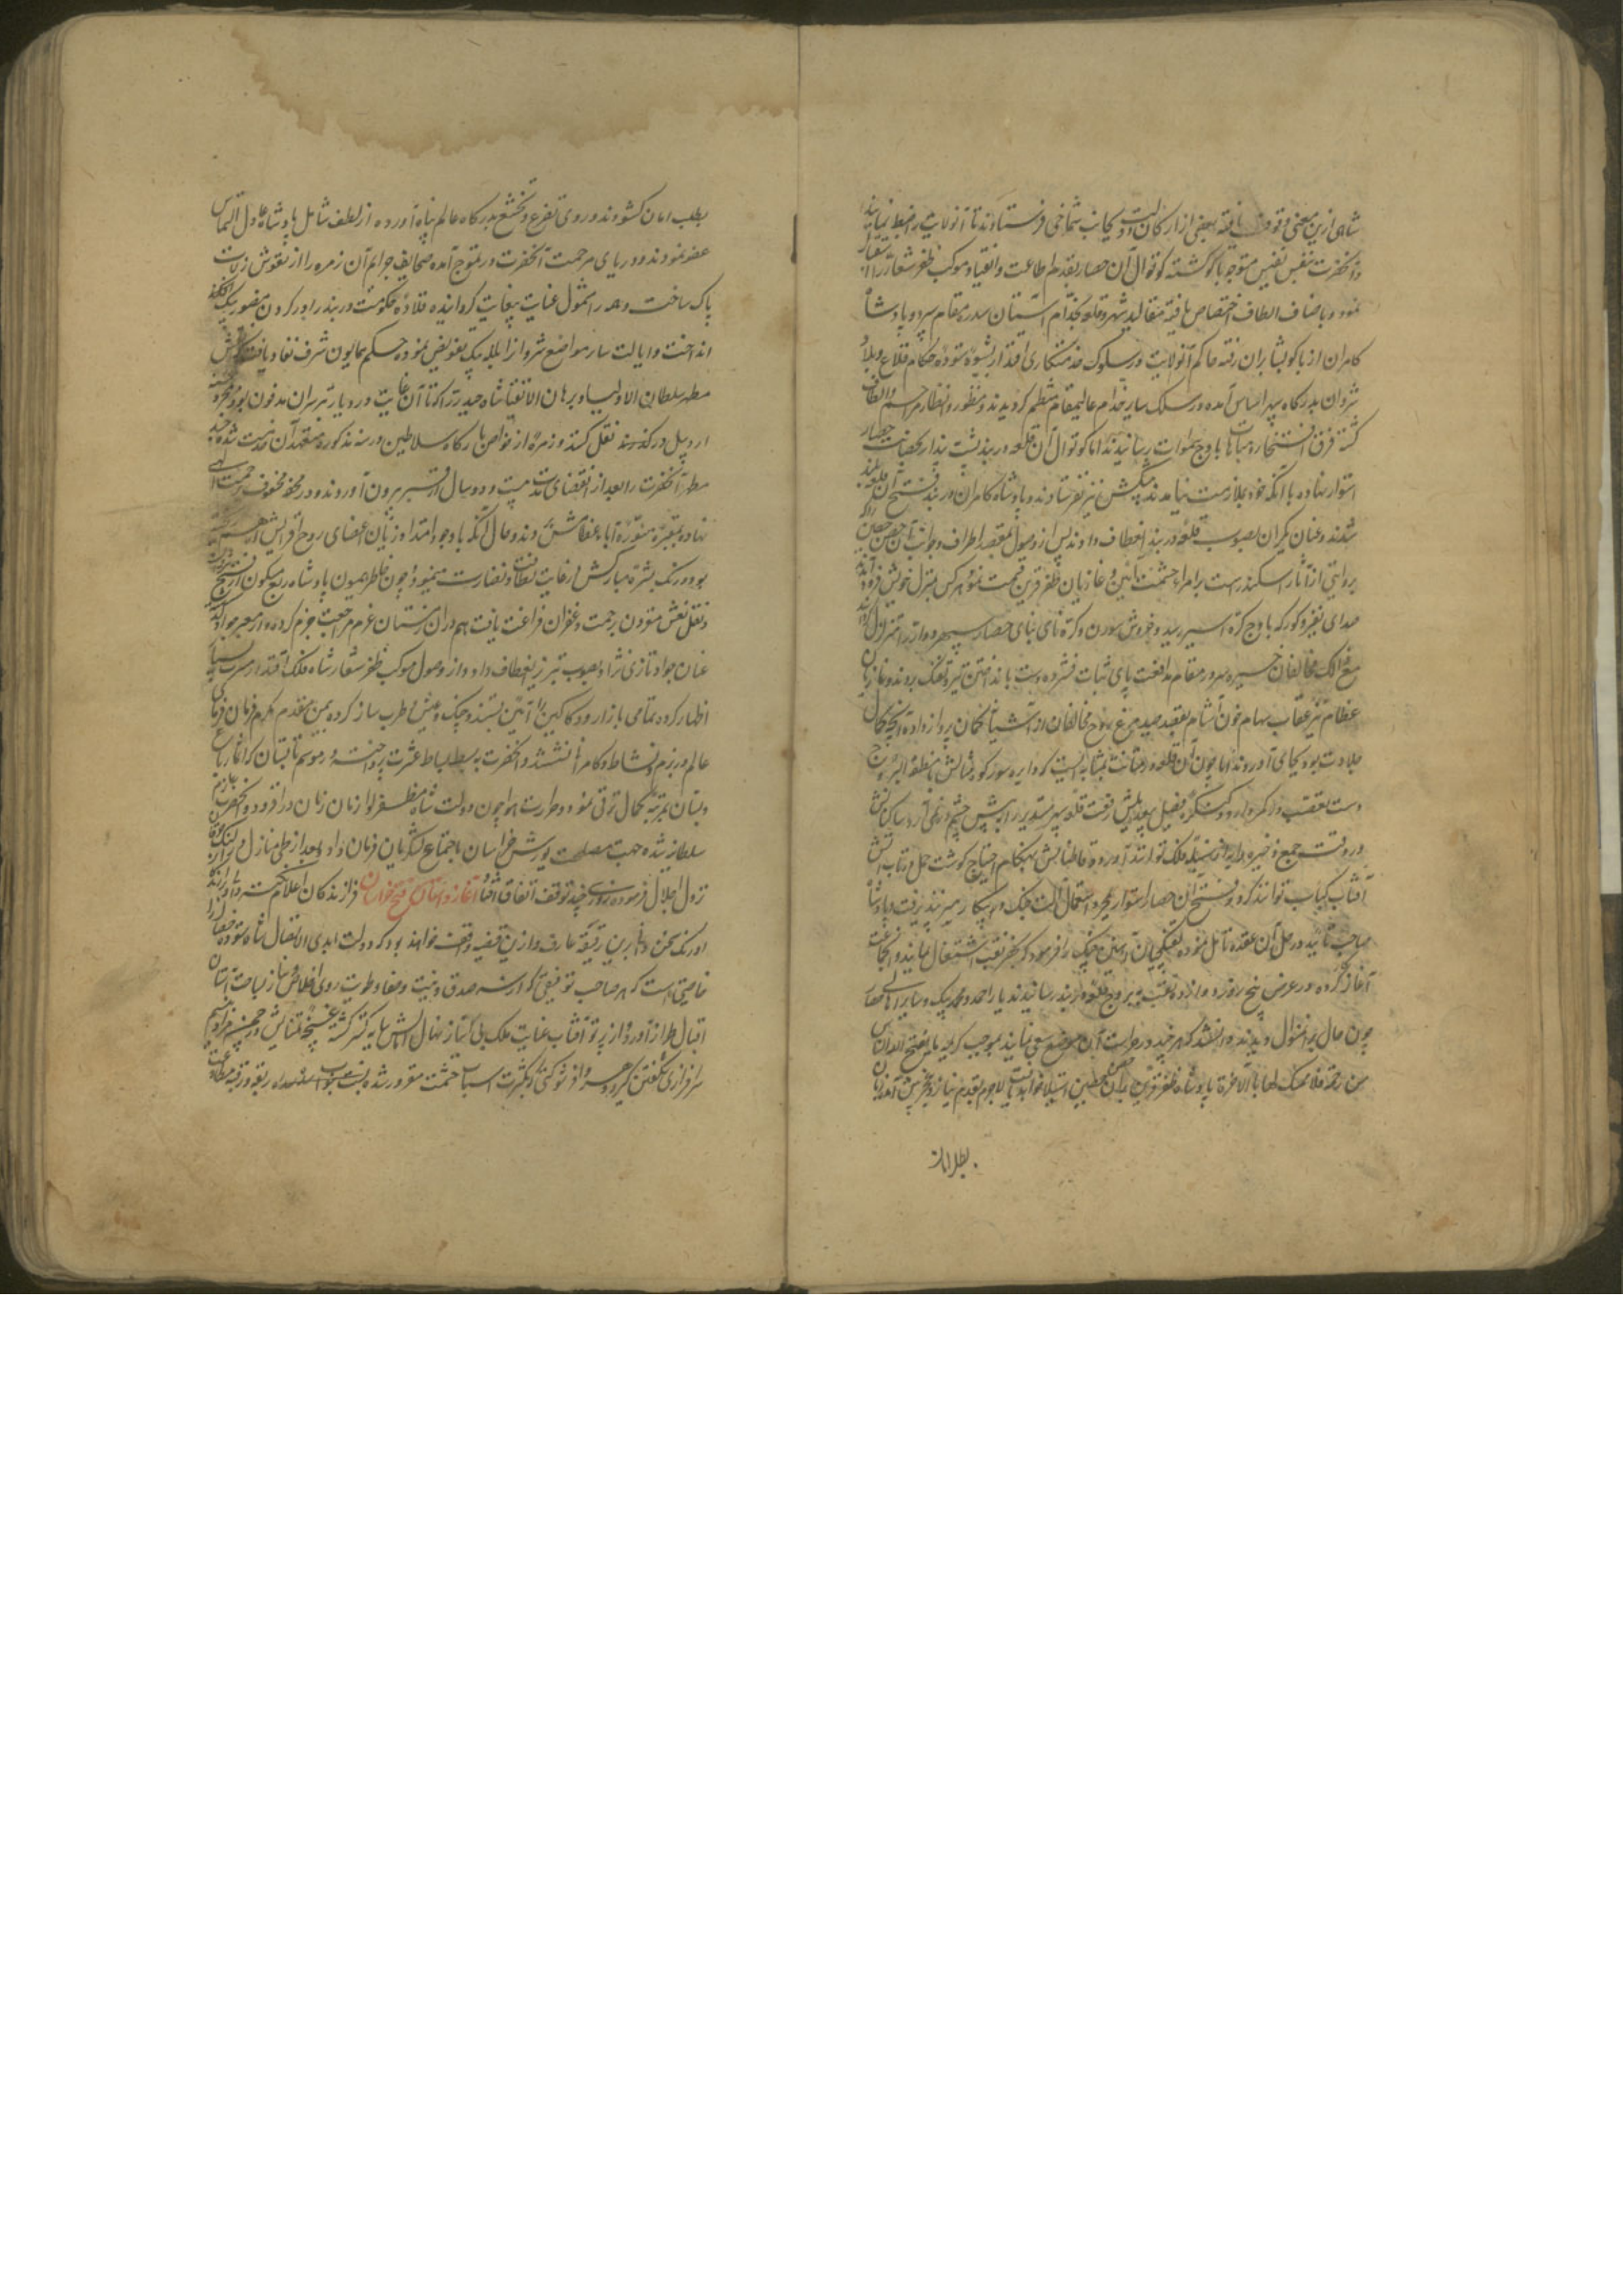 شاهی ازین معنی وقوف یافته بعضی از ارکان دولت را بجانب شماخی فرستادند تا آن ولایت را ضبط نمایند
و آنحضرت بنفس نفیس متوجه باکو گشته کوتوال آن حصار بقدم اطاعت و انقیاد موکب ظفر شعار را استقبال
نمود و باصناف الطاف اختصاص یافته مقالید شهر و قلعه بخدام آستان سدره مقام سپرد و پادشاه
کامران از باکو بشابران رفته حاکم آن ولایت در سلوک خدمتکاری اقتدا بشیوه ستوده حکام قلاع و بلاد
شروان بدرگاه سپهر اساس آمده در سلک سایر خدام عالیمقام منتظم گردیدند و منظور انظار مراحم و الطاف
گشته فرق افتخار و مباهات باوج سموات رسانیدند اما کوتوال آن قلعه دربند پشت پندار بحصانت حصار
استوار نهاده با آنکه خود بملازمت نیامدند پیشکش نیز نفرستادند و پادشاه کامران در بند فتح آن قلعه بلند
شدند و عنان یکران بصوب قلعه دربند انعطاف دادند پس از وصول بمقصد اطراف و جوانب آن حصن حصین را که
بروایتی از آثار اسکندرست بامراء حشمت آئین و غازیان ظفر قرین قسمت نمود هر کس بمنزل خویش فرود آمدند
صدای نفیر و کورکه باوج کره اثیر رسید و خروش سورن و کره نای بنای حصار سپهر دوار را متزلزل گردانید
مع ذلک مخالفان خیره سر در مقام مدافعت پای ثبات فشرده دست بانداختن تیر و تفنگ بردند و غازیان
عظام نیز عقاب سهام خون آشام بقصد صید مرغ روح مخالفان از آشیانه کمان پرواز داده آنچه کمال
جلادت بود بجای آوردند اما چون آن قلعه در متانت بمثابه ایست که دایره سور گوه مثالش با منطقة البروج
دست بعقب در کمر دارد و کنگره فصیل بیعدیلش از رفعت قلعه سپهر مستدیر را پیش چشم در نمی آرد ساکنانش
در وقت جمع ذخیره دانه از سنبله فلک توانند آورد و قاطنانش بهنگام احتیاج گوشت حمل و تاب آتش
آفتاب کباب توانند کرد و فتح آن حصار استوار بمجرد استعمال آلت جنگ و پیکار میسر نپذیرفت و پادشاه
صاحب تأیید در حل آن عقده تأمل نموده نقبچیان آهنین چنگ را فرمود که بحفر نقب اشتغال نمایند و آنجماعت
آغاز کرده در عرض پنج روز دوازده نقب به بروج قلعه دربند رسانیدند یار احمد و محمد بیک و سایر اهالی حصار
چون حال بدان منوال دیدند دانستند که هر چند در حراست آن موضع سعی نمایند بموجب کریمه ما یفتح الله للناس
من رحمة فلا ممسک لها بالآخره پادشاه ظفر قرین بدان حصن حصین استیلا خواهد یافت لاجرم بقدم نیاز و عجز پیش آمده زبان
بطلب امان
بطلب امان کشودند و روی تضرع و تخشع بدرگاه عالم پناه آورده از لطف شامل پادشاه عادل التماس
عفو نمودند و دریای مرحمت آنحضرت در تموج آمده صحایف جرایم آن زمره را از نقوش زلات
پاک ساخت و همه را مشمول عنایت بیغایت گردانیده قلاده حکومت دربند را در گردن منصور بیک
انداخت و ایالت سایر مواضع شروان را بلله بیک تفویض نموده حکم همایون شرف نفاذ یافت که نعش
مطهر سلطان الاولیاء و برهان الاتقیا شاه حیدر را که تا آن غایت در دیار تبرسران مدفون بود
اردبیل نقل کنند و زمره از خواص بارگاه سلاطین در سنه مذکوره متعهد آن خدمت شده جسد
مطهر آنحضرت را بعد از انقضای مدت بیست و دو سال از قبر بیرون آوردند و در محفه محفوف برحمت الهی
نهاده بمقبره منوره آباء عظامش بردند و حال آنکه با وجود امتداد زمان اعضای روح افزایش از هم
بود و رنگ بشره مبارکش در غایت لطافت و نضارت مینمود و چون خاطر همیون پادشاه ربع مسکون از فتح
و نقل نعش مقرون برحمت و غفران فراغت یافت هم در آن زمستان عزم مراجعت جزم کرده از معبر جواد
عنان جواد تازی نژاد بصوب تبریز انعطاف داد و از وصول موکب ظفر شعار شاه فلک اقتدار مسرت بسیار
اظهار کرده تمامی بازار و دکاکین را آئین بستند و چنگ عیش و طرب ساز کرده بیمن مقدم مکرم فرمان فرمای
عالم در بزم نشاط و کامرانی نشستند و آنحضرت به بسط بساط عشرت پرداخت و در موسم تابستان که آثار
و بتان بمرتبه کمال ترقی نمود و حرارت هوا چون دولت شاه مظفر لوا زمان زمان در افزود
سلطانیه شده جهت مصلحت یورش خراسان باجتماع لشکریان فرمان داد و بعد از طی منازل
نزول اجلال فرموده روزی چند توقف اتفاق افتاد آغاز داستان فتح خراسان فرازندگان اعلام
اورنگ سخن دانی برین دقیقه عارف و ازین قضیه واقف خواهند بود که دولت ابدی الاتصال شاه ستوده خصال را
خاصیتی است که هر صاحب توفیقی که از سر صدق نیت و صفاء طویت روی اخلاص و نیاز بساحت آستان
اقبال طراز آورد از پرتو آفتاب عنایت ملک بی نیاز نهال آمالش سایه گستر گشته غنچه تمنایش در چمن مراد بنسیم
سرافرازی شکفتن گیرد و هر سرافراز شوکتی که بکثرت اسباب حشمت مغرور شده